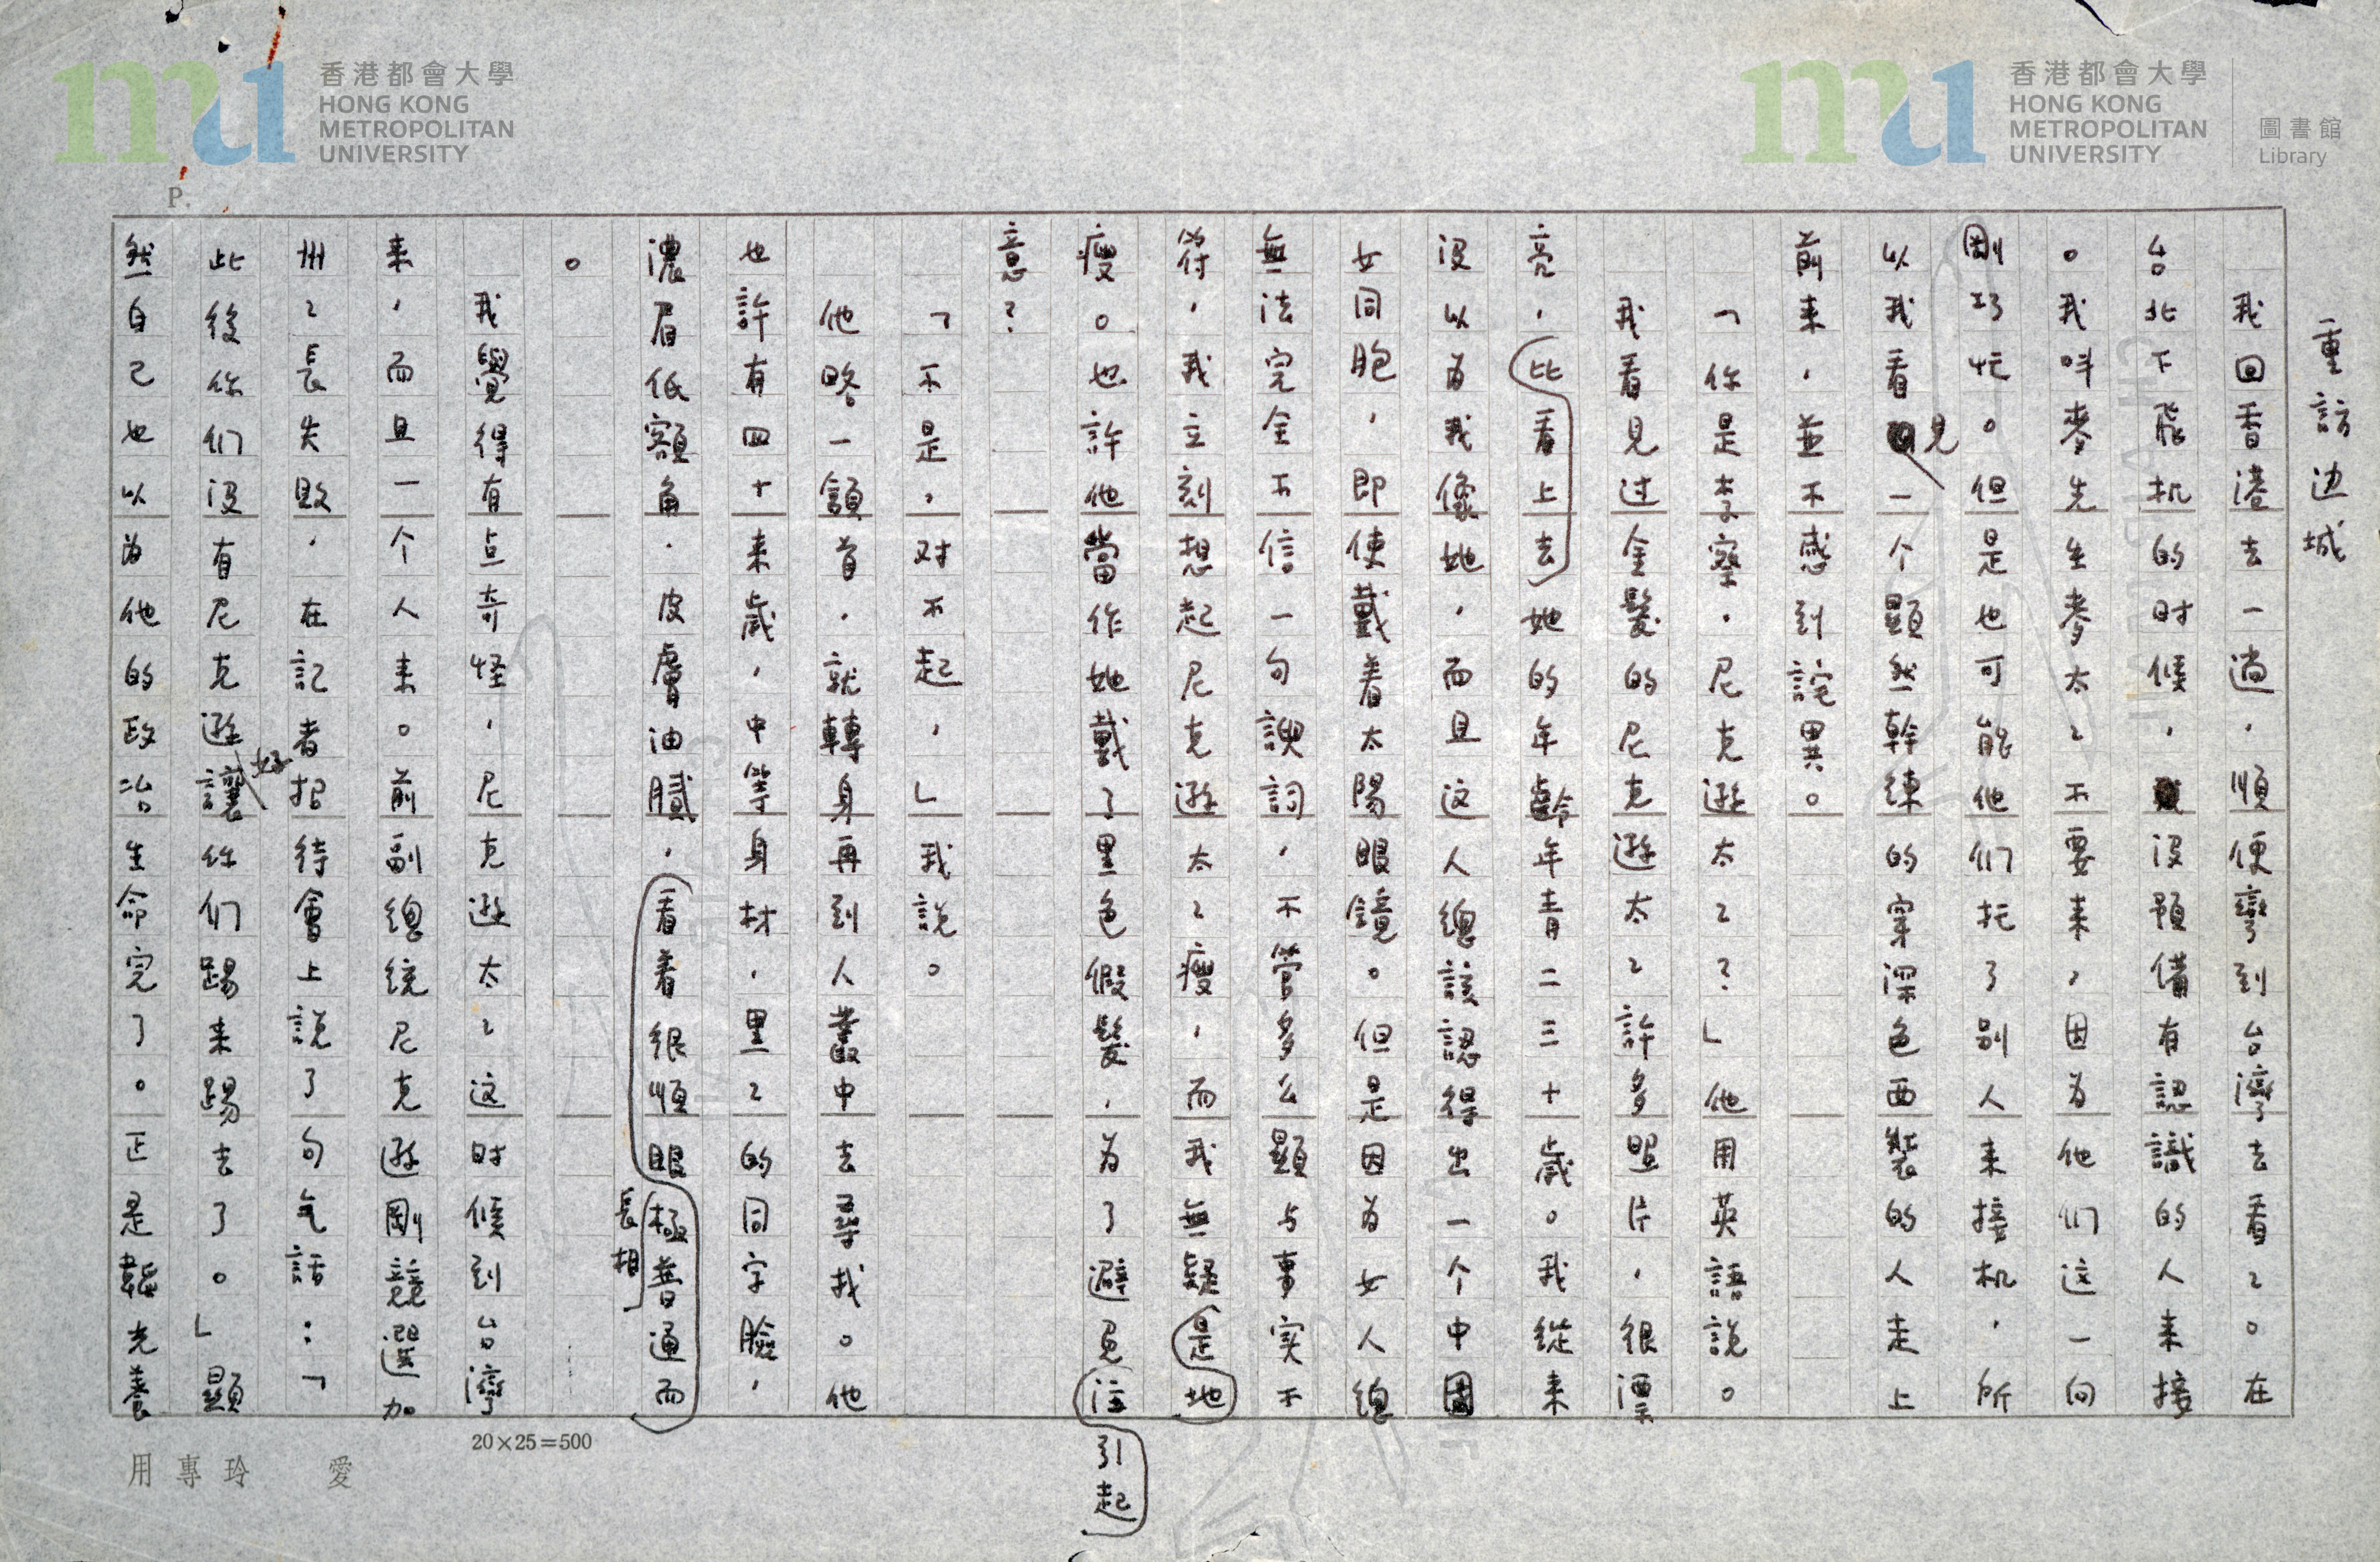 香港都會大學
HONG KONG
METROPOLITAN
UNIVERSITY
香港都會大學
HONG KONG
METROPOLITAN
UNIVERSITY
圖書館
Library
P.
重訪边城
我回香港去一趟，順便彎到台灣去看々。在
台北下飛机的时候，沒預備有認識的人来接
。我叫麥先生麥太々不要来，因为他们这一向
剛巧忙。但是也可能他们托了别人来接机，所
以我看見一个顯然幹練的穿深色西裝的人走上
前来，並不感到詫異。
「你是李察．尼克遜太々？」他用英語說。
我看見过金髮的尼克遜太々許多照片，很漂
亮，比看上去她的年齡年青二三十歲。我從来
沒以为我像她，而且这人總該認得出一个中國
女同胞，即使戴着太陽眼鏡。但是因为女人總
無法完全不信一句諛詞，不管多么顯与事实不
符，我立刻想起尼克遜太々瘦，而我無疑是地
瘦。也許他當作她戴了黑色假髮，为了避免注引起
意？
「不是，对不起，」我說。
他略一頷首，就轉身再到人叢中去尋找。他
也許有四十来歲，中等身材，黑々的同字臉，
濃眉低額角，皮膚油膩，看着很順眼極普通而
長相
。
我覺得有点奇怪，尼克遜太々这时候到台灣
来，而且一个人来。前副總統尼克遜剛競選加
州々長失敗，在記者招待會上說了句气話：「
好
此後你们沒有尼克遜讓你们踢来踢去了。」顯
然自己也以为他的政治生命完了。正是韜光養
20×25=500
愛玲專用